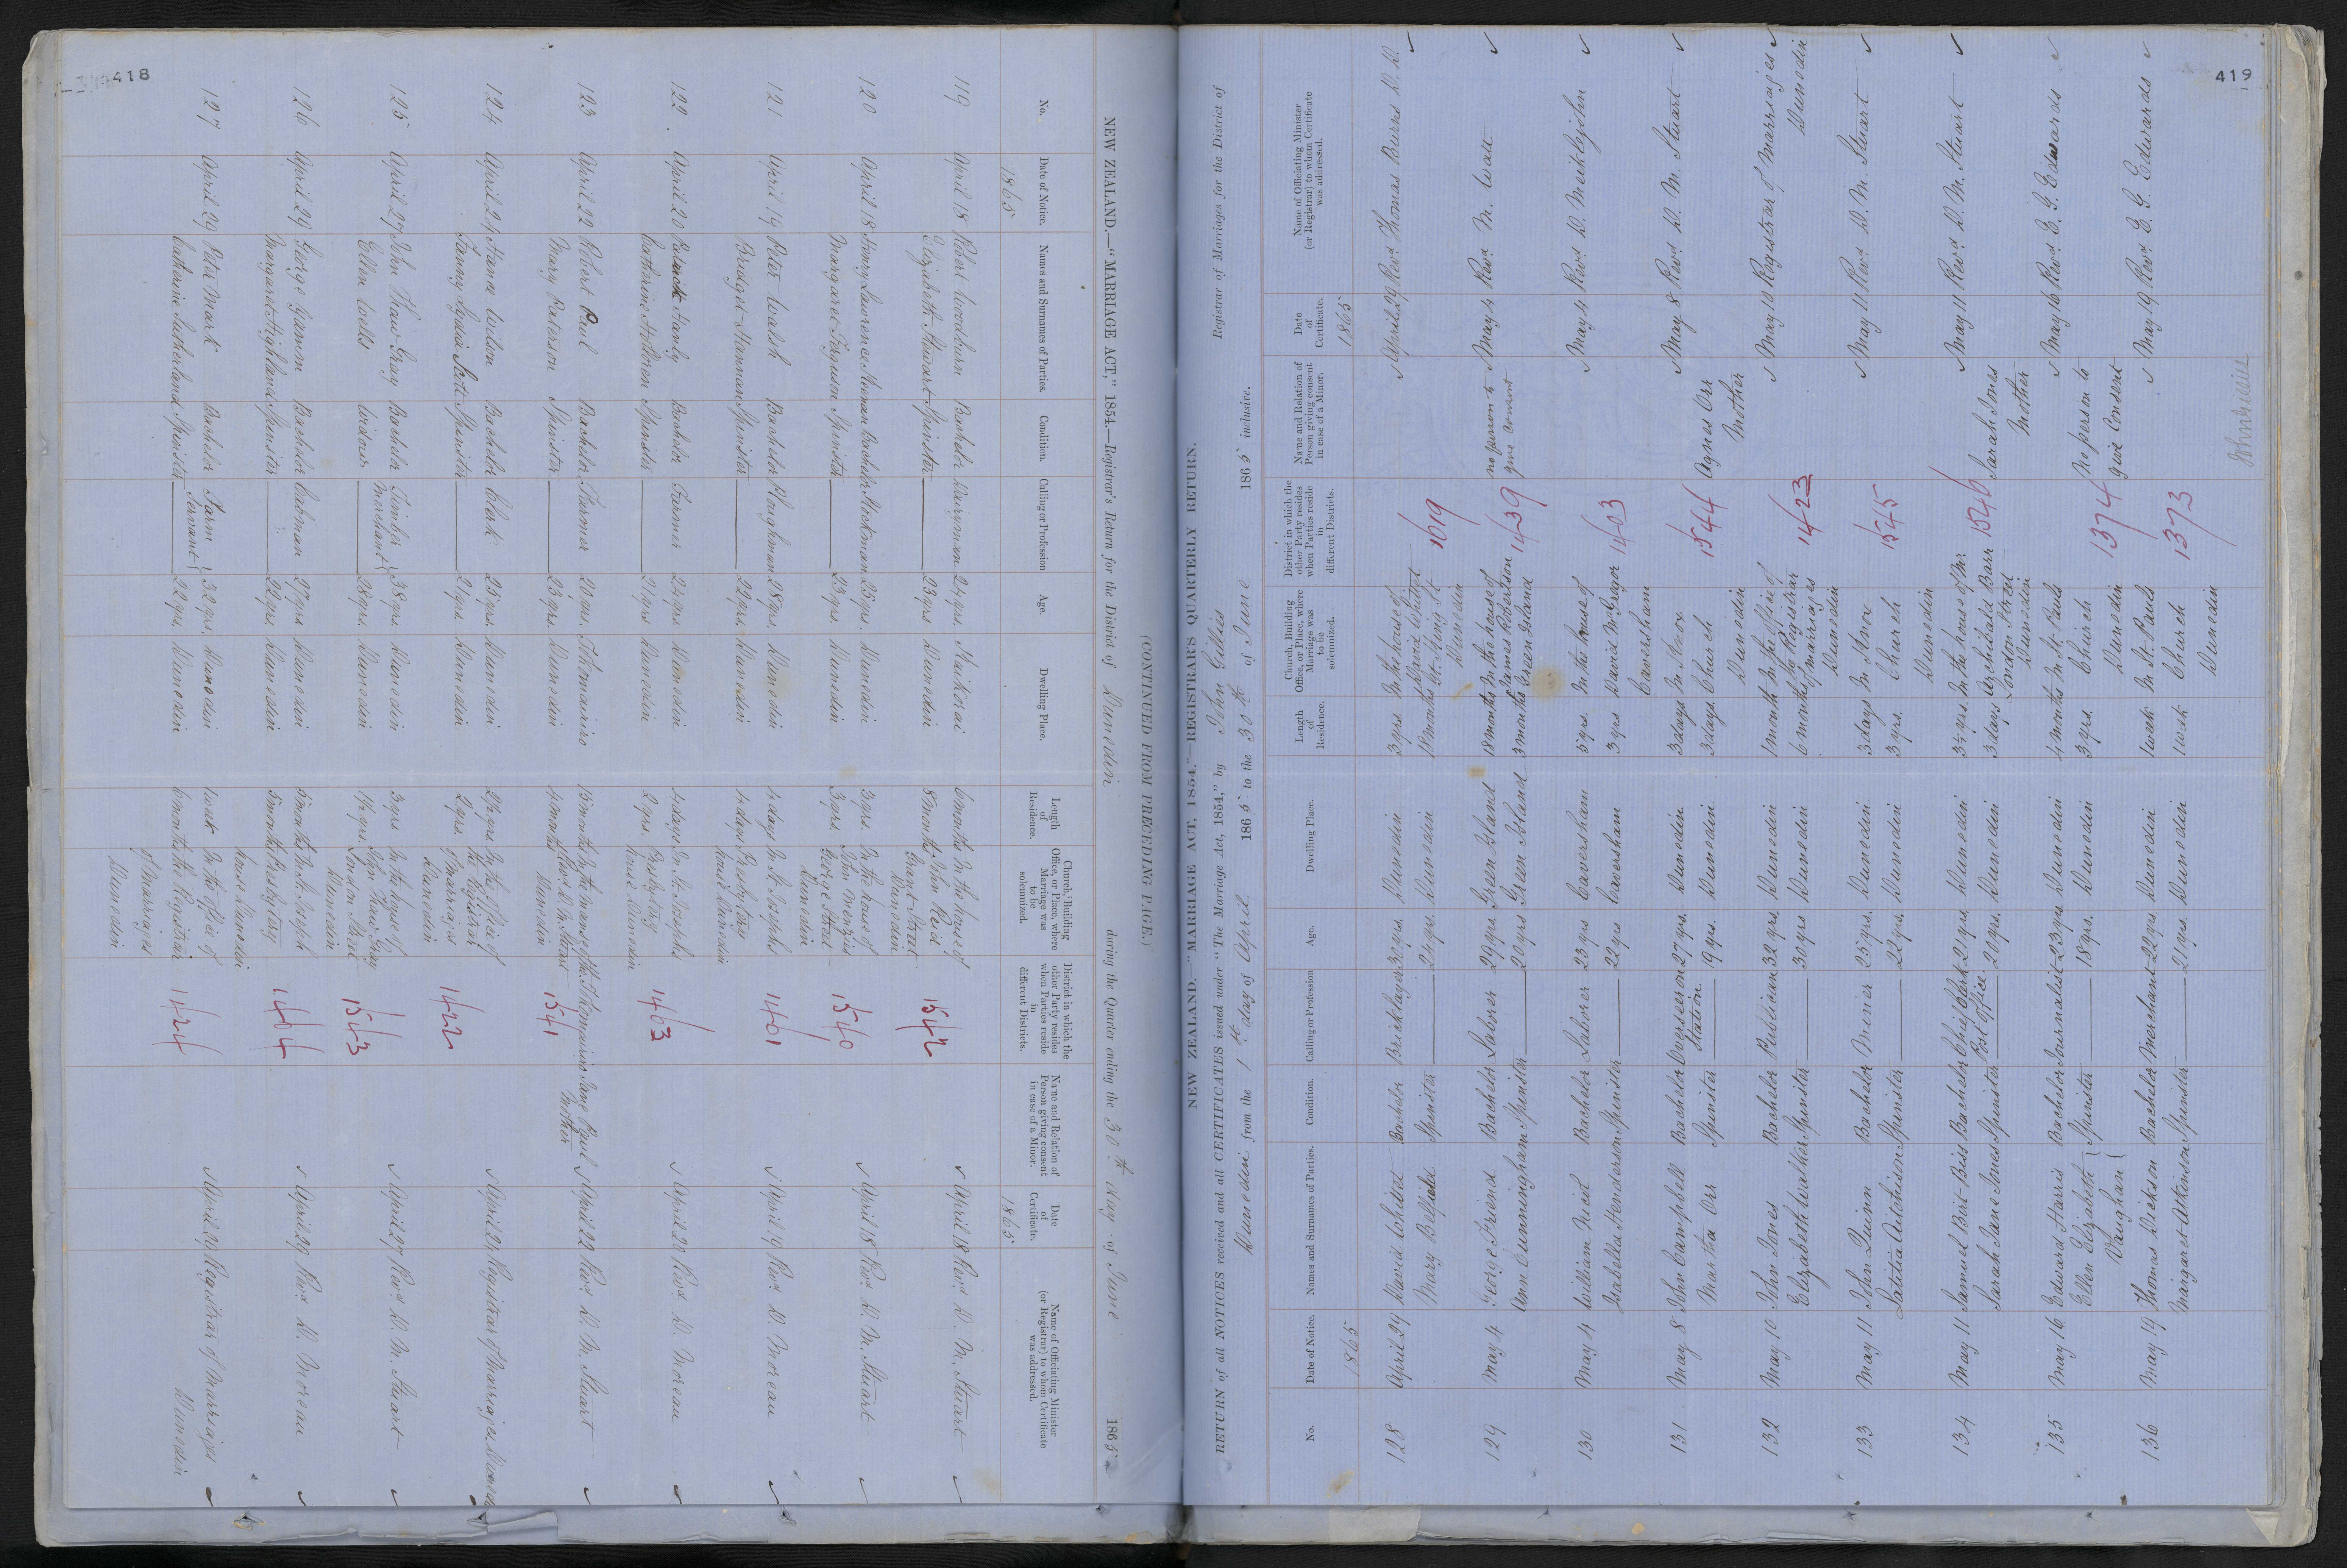 418
NEW ZEALAND.—"MARRIAGE ACT," 1854.—Registrar's Return for the District of Dunedin during the Quarter ending the 30th day of June 1865
(CONTINUED FROM PRECEDING PAGE.)
No. Date of Notice. Names and Surnames of Parties. Condition. Calling or Profession Age. Dwelling Place. Length of Residence. Church, Building Office, or Place, where Marriage was to be solemnized. District in which the other Party resides when Parties reside in different Districts. Name and Relation of Person giving consent in case of a Minor. Date of Certificate. Name of Officiating Minister (or Registrar) to whom Certificate was addressed.
1865 1865
119 April 18 Robert Woodburn Bachelor Dairyman 24 yrs. Kaikorai 6 months In the house of 1542 April 18 Revd. D. M. Stuart
Elizabeth Stewart Spinster 23 yrs Dunedin 8 months John Reid
Grant Street
Dunedin
120 April 18 Henry Lawrence Bachelor Stockman 25 yrs. Dunedin 3 yrs. In the house of 1540 April 18 Revd. D. M. Stuart
Margaret Ferguson Spinster 23 yrs. Dunedin 3 yrs. John Menzies
George Street
Dunedin
121 April 19 Peter Walsh Bachelor Ploughman 28 yrs. Dunedin 4 days In St. Josephs 1401 April 19 Revd. D. Moreau
Bridget Hannan Spinster 22 yrs. Dunedin 4 days Presbytery
House Dunedin
122 April 20 Patrick Hanly Bachelor Farmer 24 yrs. Dunedin 4 days In St. Josephs 1403 April 20 Revd. D. Moreau
Catherine Spinster 21 yrs Dunedin 2 yrs. Presbytery
House Dunedin
123 April 22 Robert Paul Bachelor Farmer 20 yrs. Tokomairiro 15 months In the manse of the Tokomairiro Jane Paul April 22 Revd. D. M. Stuart
Mary Paterson Spinster 23 yrs. Dunedin 4 months Revd. D. M. Stuart 1541 Mother
Dunedin
124 April 24 Bachelor Clerk 25 yrs. Dunedin 2½ yrs In the office of 1422 April 24 Registrar of Marriages Dunedin
Fanny Lydia Scott Spinster 21 yrs. Dunedin 2 yrs. the Registrar
of Marriages
Dunedin
125 April 27 John Thaw Gray Bachelor Timber 38 yrs. Dunedin 3 yrs In the house of 1543 April 27 Revd. D. M. Stuart
Ellen Wells Widow Merchant 28 yrs. Dunedin 1½ yrs. John Thaw Gray
London Street
Dunedin
126 April 29 George Gamm Bachelor Cabman 27 yrs Dunedin 5 months In St. Joseph 1404 April 29 Revd. D. Moreau
Margaret Highland Spinster 22 yrs. Dunedin 5 months Presbytery
House Dunedin
127 April 29 Peter Mark Bachelor Farm 32 yrs. Dunedin 1 week In the office of 1424 April 29 Registrar of Marriages
Catherine Sutherland Spinster Servant 22 yrs. Dunedin 6 months the Registrar Dunedin
of Marriages
Dunedin
419
NEW ZEALAND.—"MARRIAGE ACT, 1854."—REGISTRAR'S QUARTERLY RETURN.
RETURN of all NOTICES received and all CERTIFICATES issued under "The Marriage Act, 1854," by John Gillies Registrar of Marriages for the District of
Dunedin from the 1st day of April 1865 to the 30th of June 1865 inclusive.
No. Date of Notice. Names and Surnames of Parties. Condition. Calling or Profession Age. Dwelling Place. Length of Residence. Church, Building Office, or Place, where Marriage was to be solemnized. District in which the other Party resides when Parties reside in different Districts. Name and Relation of Person giving consent in case of a Minor. Date of Certificate. Name of Officiating Minister (or Registrar) to whom Certificate was addressed.
1865 1865
128 April 29 David Whitet Bachelor Bricklayer 30 yrs. Dunedin 3 yrs. In the house of 1619 April 29 Revd. Thomas Burns D.D.
Mary Spinster 24 yrs. Dunedin 18 months David Whitet
Gt. King St.
Dunedin
129 May 4 George Friend Bachelor Laborer 29 yrs. Green Island 18 months In the house of 1439 no person to May 4 Revd. M. Watt
Ann Cunningham Spinster 20 yrs Green Island 3 months James Robertson give consent
Green Island
130 May 4 William Bachelor Laborer 23 yrs Caversham 5 yrs. In the house of 1403 May 4 Revd. D. Meiklejohn
Isabella Henderson Spinster 22 yrs Caversham 3 yrs David McGregor
Caversham
131 May 8 John Campbell Bachelor Overseer on 27 yrs. Dunedin 3 days In Knox 1544 Agnes Orr May 8 Revd. D. M. Stuart
Martha Orr Spinster Station 19 yrs. Dunedin 3 days Church Mother
Dunedin
132 May 10 John Jones Bachelor Publican 32 yrs. Dunedin 1 month In the office of 1423 May 10 Registrar of Marriages
Elizabeth Walker Spinster 30 yrs Dunedin 6 months the Registrar Dunedin
of marriages
Dunedin
133 May 11 John Quinn Bachelor Miner 25 yrs. Dunedin 3 days In Knox 1545 May 11 Revd. D. M. Stuart
Latitia Aitchison Spinster 22 yrs. Dunedin 3 yrs. Church
Dunedin
134 May 11 Samuel Birt Biss Bachelor Chief Clerk 21 yrs. Dunedin 3½ yrs. In the house of Mr 1546 Sarah Jones May 11 Revd. D. M. Stuart
Sarah Jane Jones Spinster Post Office 20 yrs. Dunedin 3 days Archibald Barr Mother
London Street
Dunedin
135 May 16 Edward Harris Bachelor Journalist 23 yrs. Dunedin 4 months In St. Pauls 1374 No person to May 16 Revd. E. G. Edwards
Ellen Elizabeth Spinster 18 yrs. Dunedin 3 yrs. Church give Consent
Vaughan Dunedin
136 May 19 Thomas Dickson Bachelor Merchant 22 yrs. Dunedin 1 week In St. Pauls 1373 May 19 Revd. E. G. Edwards
Margaret Atkinson Spinster 21 yrs. Dunedin 1 week Church
Dunedin
John Gillies